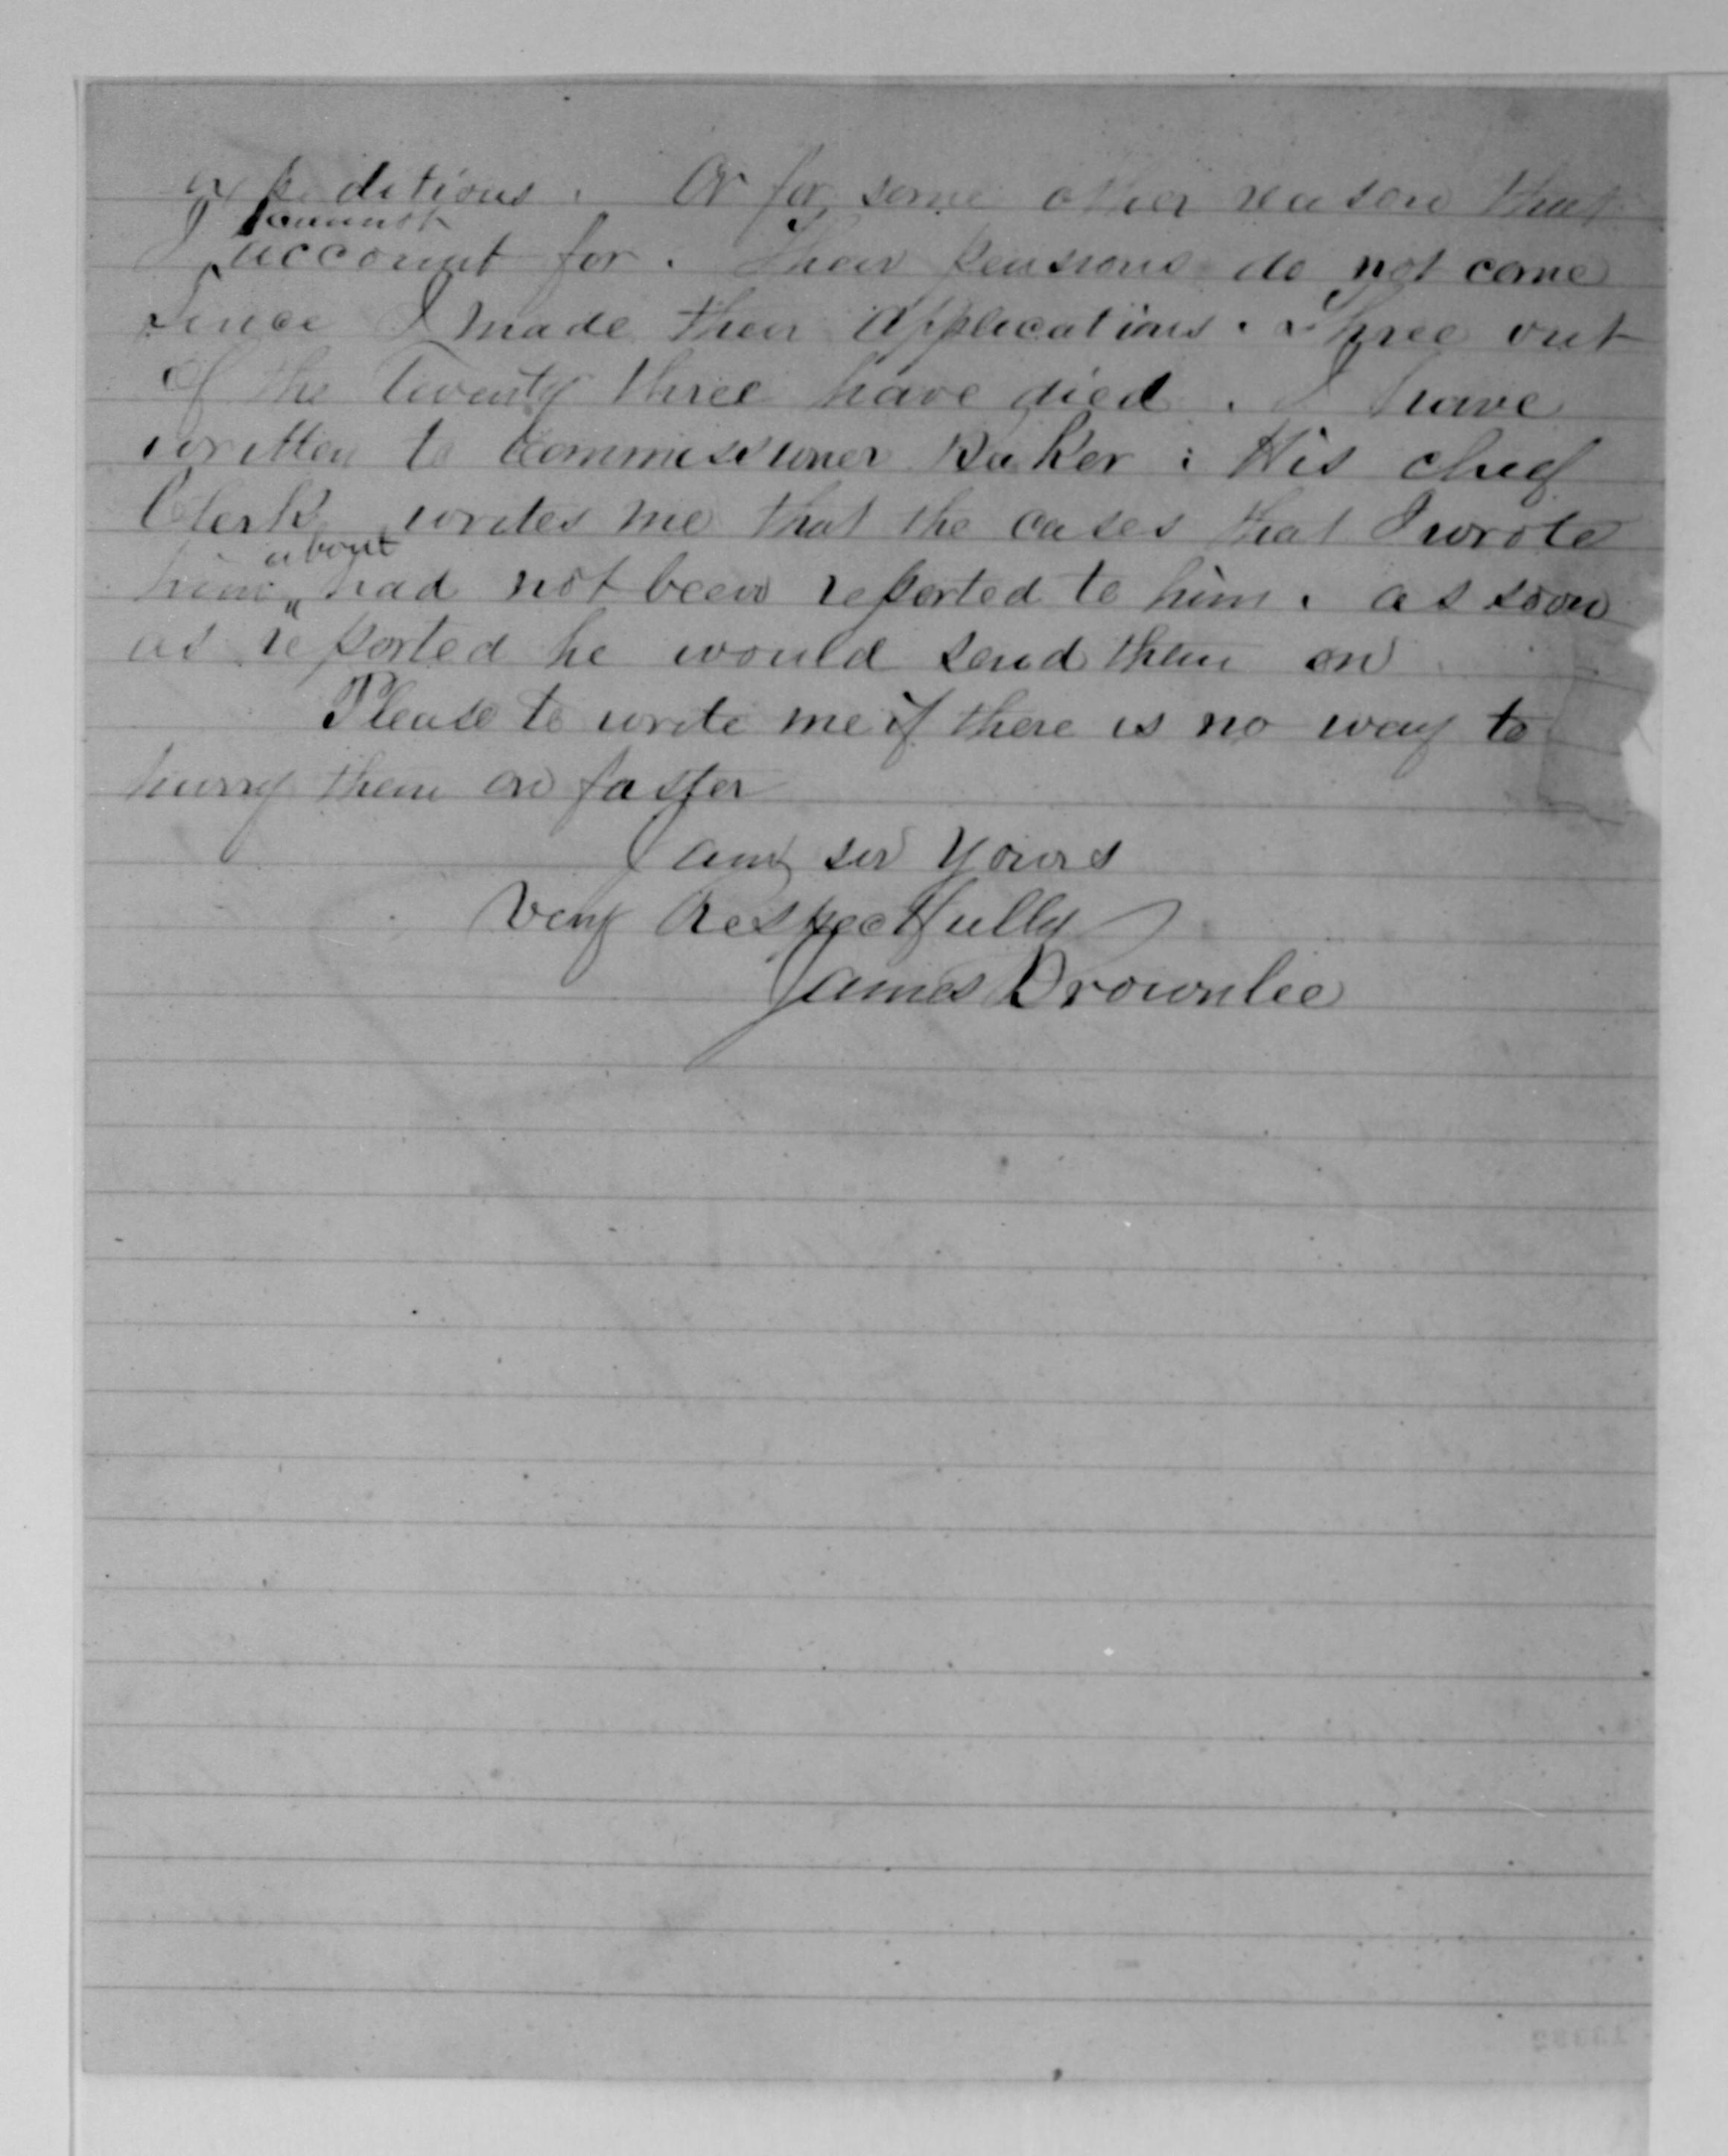 expeditions. Or for some other reason that
I cannot
account for. Their pensions do not come
Since I made their applications. Three out
of the Twenty three have died. I have
written to Commissioner Baker: His chief
Clerk writes me that the cases that I wrote
him about had not been reported to him. as soon
as reported he would send them on
Please to write me if there is no way to
hurry them on faster
I am sir yours
Very Respectfully
James Brownlee